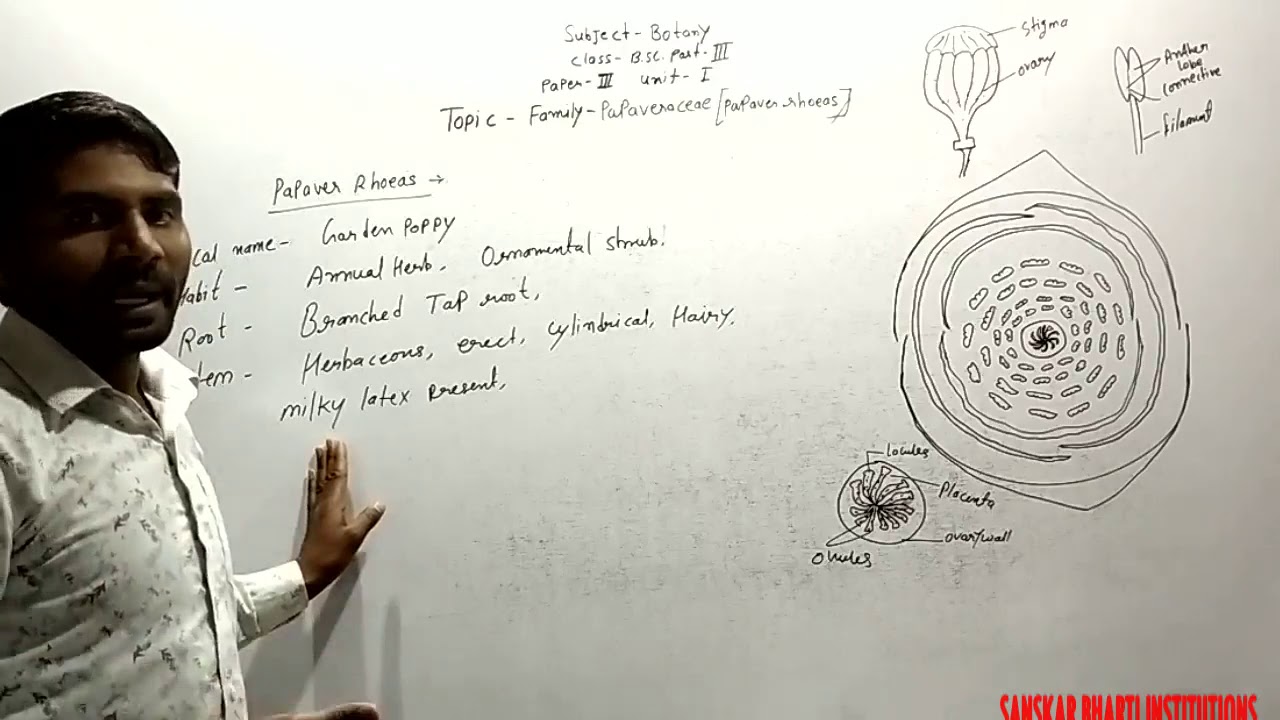 Subject - Botany
Class - B.Sc. Part - III
Paper - III Unit - I
Topic - Family - Papaveraceae [Papaver rhoeas]
Papaver Rhoeas →
cal name - Garden Poppy
Habit - Annual Herb, Ornomental shrub.
Root - Branched Tap root,
tem - Herbaceous, erect, cylindrical, Hairy,
milky latex present,
stigma
ovary
Anther
lobe
Connective
filament
Locules
Placenta
ovary wall
Ovules
SANSKAR BHARTI INSTITUTIONS